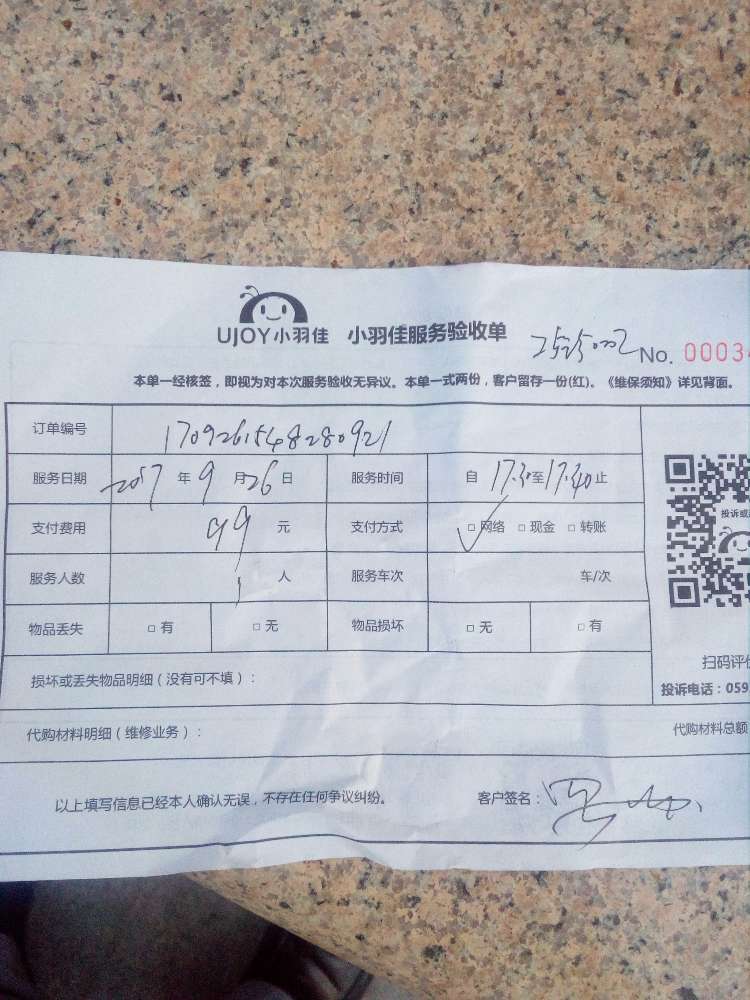 UJOY小羽佳 小羽佳服务验收单 No. 0003
本单一经核签，即视为对本次服务验收无异议。本单一式两份，客户留存一份(红)。《维保须知》详见背面。
订单编号 1709261548280921
服务日期 2017 年 9 月 26 日 服务时间 自 17.30 至 17.40 止
支付费用 99 元 支付方式 □网络 □现金 □转账
投诉或
服务人数 1 人 服务车次 车/次
物品丢失 □有 □无 物品损坏 □无 □有
扫码评价
损坏或丢失物品明细（没有可不填）：
投诉电话：059
代购材料明细（维修业务）： 代购材料总额
以上填写信息已经本人确认无误，不存在任何争议纠纷。 客户签名：